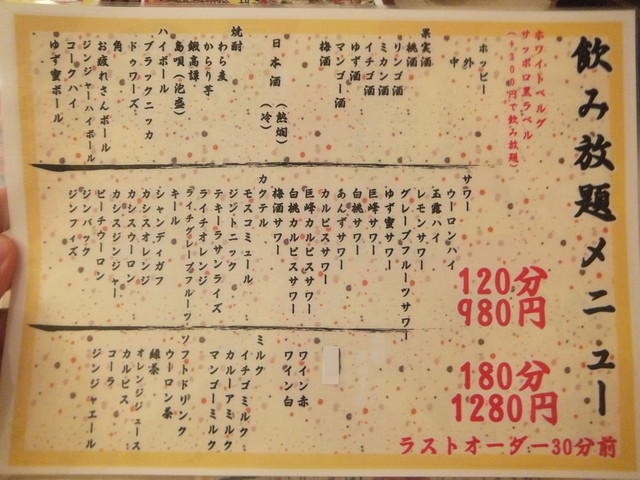 飲み放題メニュー
ホワイトベルグ
サッポロ黒ラベル
(+300円で飲み放題)
ホッピー
外
中
果実酒
桃酒
リンゴ酒
ミカン酒
イチゴ酒
ゆず酒
マンゴー酒
梅酒
日本酒
(熱燗)
(冷)
焼酎
わら麦
からり芋
鍛高譚
島唄(泡盛)
ハイボール
ブラックニッカ
ドゥワーズ
角
お疲れさんボール
ジンジャーハイボール
コークハイ
ゆず蜜ボール
サワー
ウーロンハイ
玉露ハイ
レモンサワー
グレープフルーツサワー
ゆず蜜サワー
巨峰サワー
白桃サワー
あんずサワー
カルピスサワー
巨峰カルピスサワー
白桃カルピスサワー
梅酒サワー
カクテル
モスコミュール
ジントニック
テキーラサンライズ
ライチオレンジ
ライチグレープフルーツ
キール
シャンディガフ
カシスオレンジ
カシスウーロン
カシスジンジャー
ピーチウーロン
ジンバック
ジンフィズ
120分
980円
180分
1280円
ラストオーダー30分前
ワイン赤
ワイン白
ミルク
イチゴミルク
カルーアミルク
マンゴーミルク
ソフトドリンク
ウーロン茶
緑茶
オレンジジュース
カルピス
コーラ
ジンジャエール